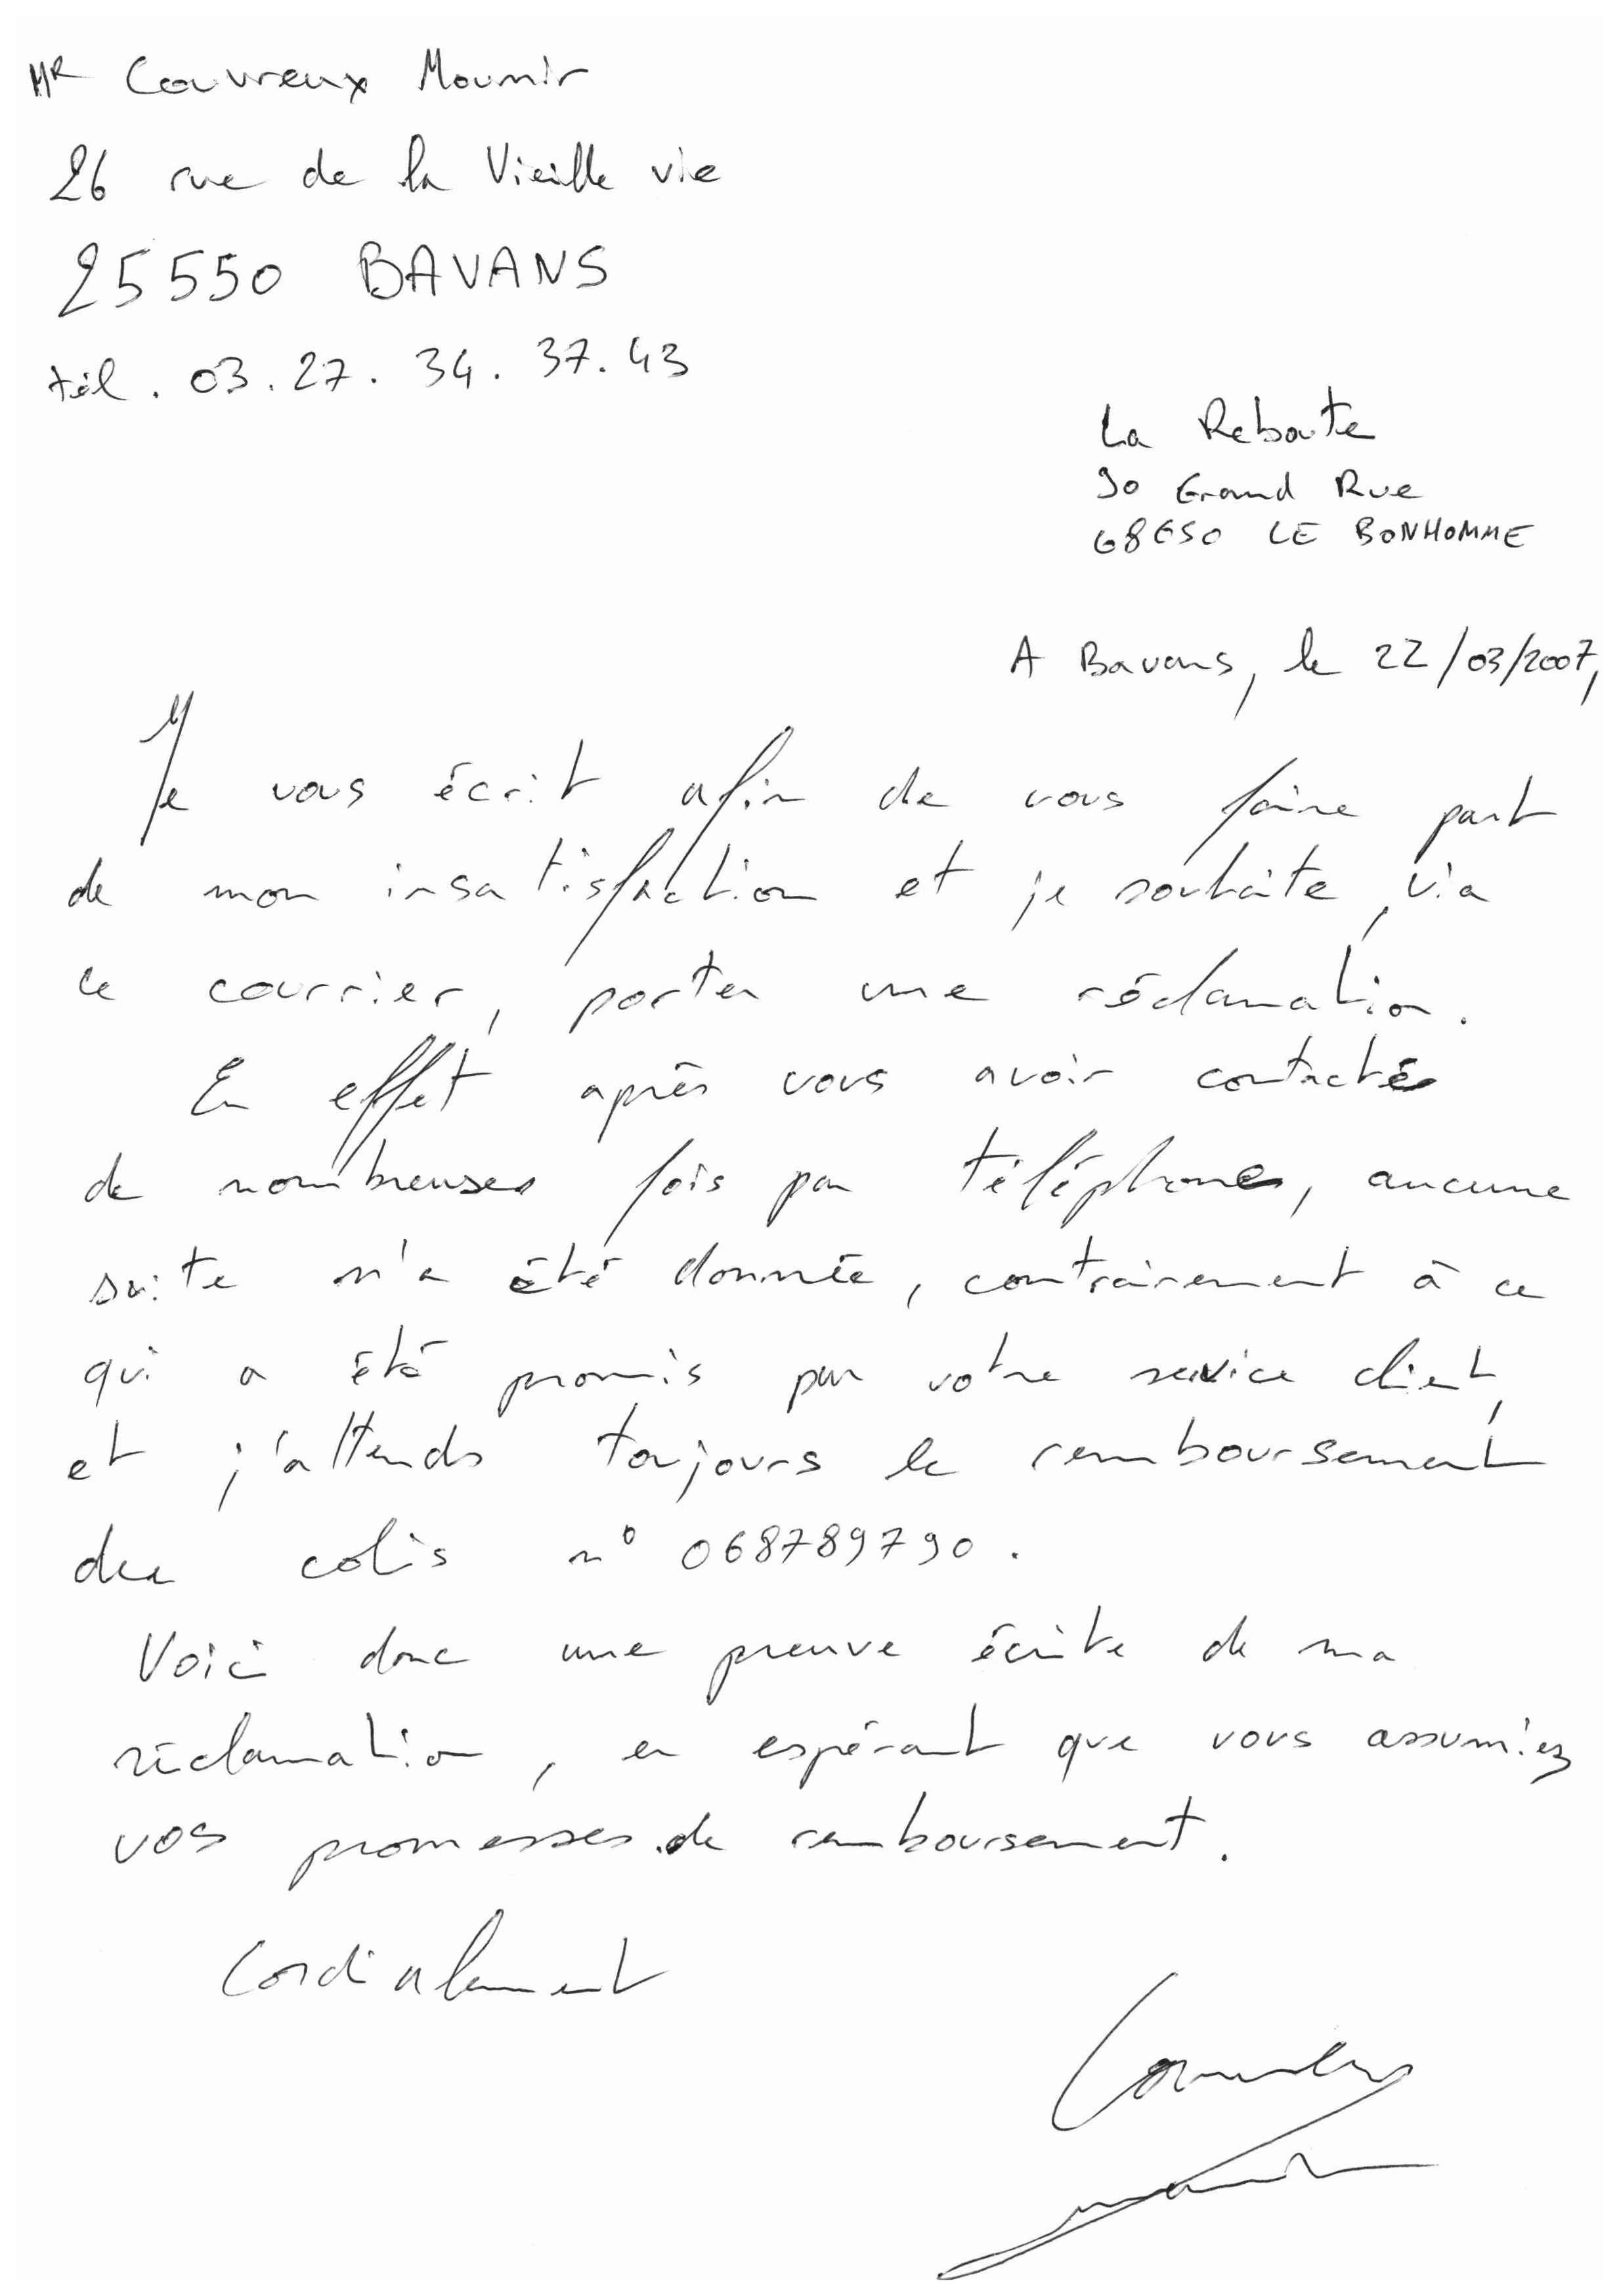 Mr Couvreux Mounir
26 rue de la Vieille vie
25550 BAVANS
tél. 03.27.34.37.43
La Reboute
90 Grand Rue
68650 LE BONHOMME
A Bavans, le 22/03/2007,
Je vous écrit afin de vous faire part
de mon insatisfaction et je souhaite, via
ce courrier, porter une réclamation.
En effet après vous avoir contacté
de nombreuses fois par téléphone, aucune
suite n'a été donnée, contrairement à ce
qui a été promis par votre service client,
et j'attends toujours le remboursement
du colis n° 068789790.
Voici donc une preuve écrite de ma
réclamation, en espérant que vous assumiez
vos promesses de remboursement.
Cordialement